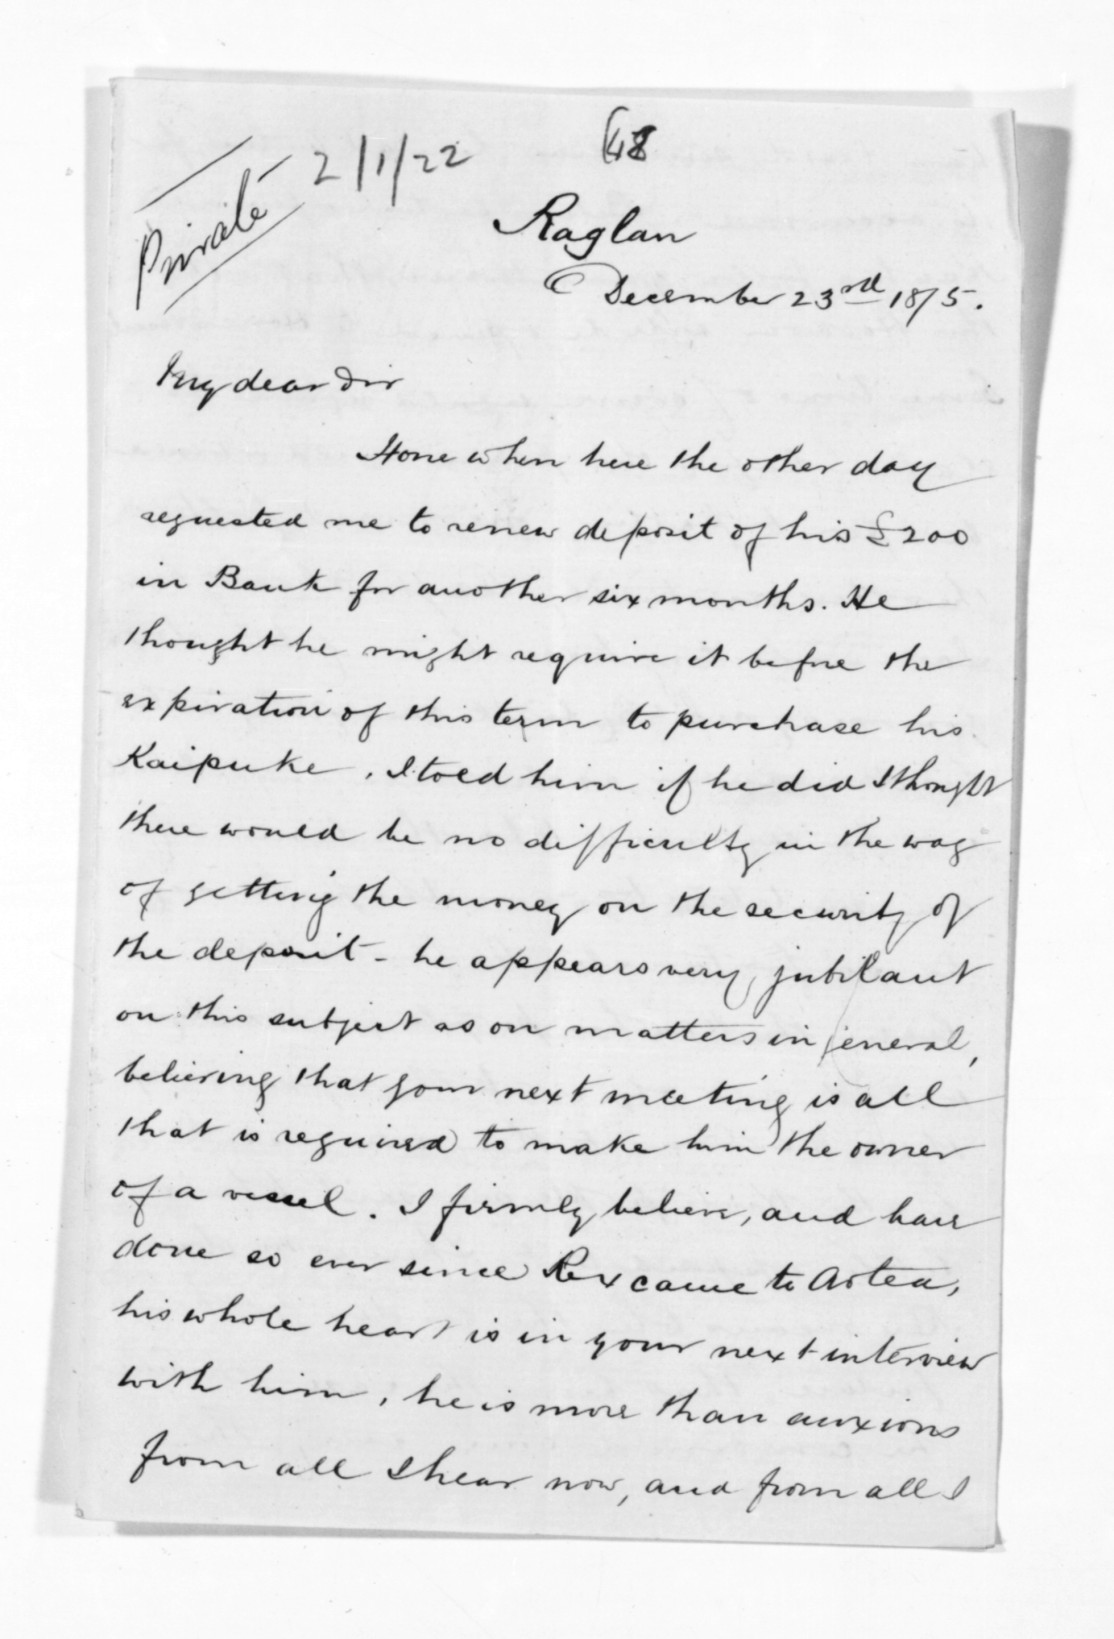 Private
2/1/22
48
Raglan
December 23rd 1875.
My dear Sir
Hone when here the other day
requested me to renew deposit of his £200
in Bank for another six months. He
thought he might require it before the
expiration of this term to purchase his
Kaipuke. I told him if he did I thought
there would be no difficulty in the way
of getting the money on the security of
the deposit - he appears very jubilant
on this subject as on matters in general,
believing that your next meeting is all
that is required to make him the owner
of a vessel. I firmly believe, and have
done so ever since Rex came to Aotea,
his whole heart is in your next interview
with him, he is more than anxious
from all I hear now, and from all I